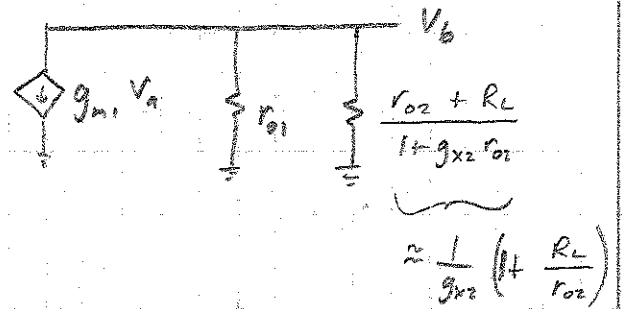 V_b
g_m1 V_a
r_o1
(r_o2 + R_L) / (1 + g_x2 r_o2)
≈ 1/g_x2 (1 + R_L/r_o2)